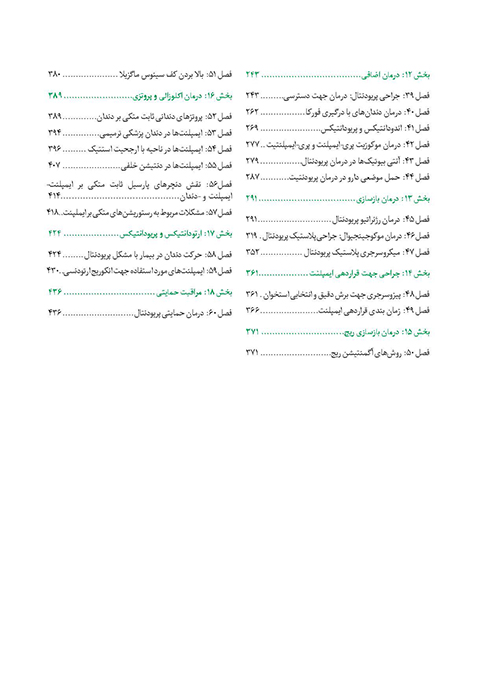 بخش ۱۲: درمان اضافی ..................................... ۲۴۳
فصل ۳۹: جراحی پریودنتال: درمان جهت دسترسی......... ۲۴۳
فصل ۴۰: درمان دندان‌های با درگیری فورکا................... ۲۶۲
فصل ۴۱: اندودانتیکس و پریودانتیکس....................... ۲۶۹
فصل ۴۲: درمان موکوزیت پری-ایمپلنت و پری-ایمپلنتیت .. ۲۷۷
فصل ۴۳: آنتی بیوتیک‌ها در درمان پریودنتال................ ۲۷۹
فصل ۴۴: حمل موضعی دارو در درمان پریودنتیت........... ۲۸۷
بخش ۱۳: درمان بازسازی............................... ۲۹۱
فصل ۴۵: درمان رژنراتیو پریودنتال............................ ۲۹۱
فصل ۴۶: درمان موکوجینجیوال: جراحی پلاستیک پریودنتال . ۳۱۹
فصل ۴۷: میکروسرجری پلاستیک پریودنتال ................ ۳۵۲
بخش ۱۴: جراحی جهت قراردهی ایمپلنت................... ۳۶۱
فصل ۴۸: پیزوسرجری جهت برش دقیق و انتخابی استخوان . ۳۶۱
فصل ۴۹: زمان بندی قراردهی ایمپلنت...................... ۳۶۶
بخش ۱۵: درمان بازسازی ریج............................... ۳۷۱
فصل ۵۰: روش‌های آگمنتیشن ریج........................... ۳۷۱
فصل ۵۱: بالا بردن کف سینوس ماگزیلا ..................... ۳۸۰
بخش ۱۶: درمان اکلوزالی و پروتزی.......................... ۳۸۹
فصل ۵۲: پروتزهای دندانی ثابت متکی بر دندان............. ۳۸۹
فصل ۵۳: ایمپلنت‌ها در دندان پزشکی ترمیمی.............. ۳۹۴
فصل ۵۴: ایمپلنت‌ها در ناحیه با ارجحیت استتیک ......... ۳۹۶
فصل ۵۵: ایمپلنت‌ها در دنتیشن خلفی...................... ۴۰۷
فصل۵۶: نقش دنچرهای پارسیل ثابت متکی بر ایمپلنت-
ایمپلنت و -دندان............................................. ۴۱۴
فصل ۵۷: مشکلات مربوط به رستوریشن‌های متکی بر ایمپلنت.. ۴۱۸
بخش ۱۷: ارتودانتیکس و پریودانتیکس..................... ۴۲۴
فصل ۵۸: حرکت دندان در بیمار با مشکل پریودنتال........ ۴۲۴
فصل ۵۹: ایمپلنت‌های مورد استفاده جهت انکوریج ارتودنسی.. ۴۳۰
بخش ۱۸: مراقبت حمایتی................................... ۴۳۶
فصل ۶۰: درمان حمایتی پریودنتال........................... ۴۳۶